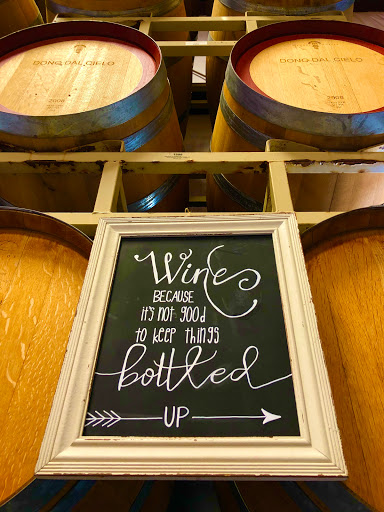 DONO DAL CIELO
2008
DONO DAL CIELO
2008
Wine
BECAUSE
it's not good
to keep things
bottled
UP